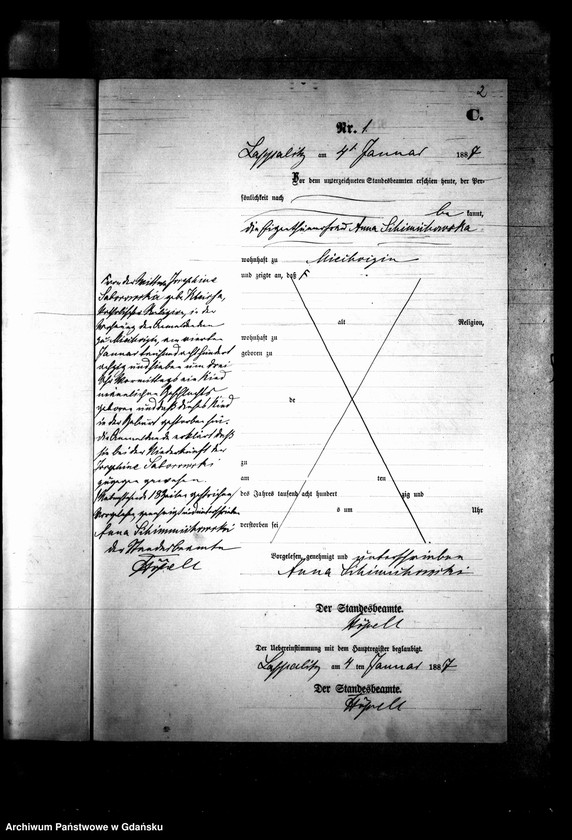 2
C.
Nr. 1
Lappalitz am 4t Januar 1887
Vor dem unterzeichneten Standesbeamten erschien heute, der Per-
sönlichkeit nach
be kannt,
die Eigenthümerfrau Anna Schimichowska
wohnhaft zu
und zeigte an, daß F
F von der Wittwe Josephine
katholischer Religion, in der
Wohnung der Anmeldenden
am vierten
Januar tausend acht hundert
achtzig und sieben um drei
Uhr Vormittags ein Kind
männlichen Geschlechts
geboren und daß dieses Kind
in der Geburt gestorben sei.
Die Anmeldende erklärt daß
sie bei der Niederkunft der
Josephine
zugegen gewesen.
Vorstehend 18 Zeilen gestrichen
Vorgelesen, genehmigt und unterschrieben
Anna Schimmichowski
der Standesbeamte
alt Religion,
wohnhaft zu
geboren zu
de
zu
am ten
des Jahres tausend acht hundert zig und
s um Uhr
verstorben sei
Vorgelesen, genehmigt und unterschrieben
Anna Schimichowski
Der Standesbeamte.
Der Uebereinstimmung mit dem Hauptregister beglaubigt.
Lappalitz am 4 ten Januar 1887
Der Standesbeamte.
Archiwum Państwowe w Gdańsku